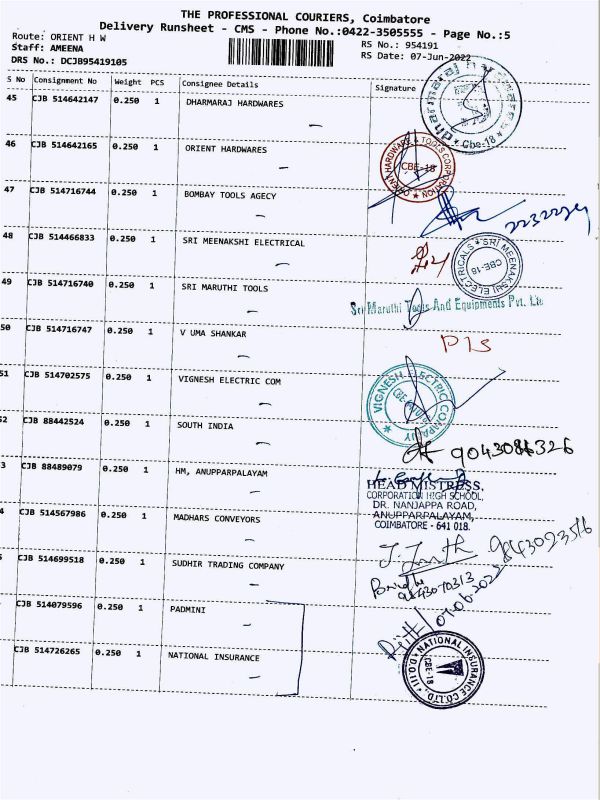 THE PROFESSIONAL COURIERS, Coimbatore
Delivery Runsheet - CMS - Phone No.:0422-3505555 - Page No.:5
Route: ORIENT H W
RS No.: 954191
Staff: AMEENA
RS Date: 07-Jun-2022
DRS No.: DCJB95419105
S No Consignment No Weight PCS Consignee Details Signature
45 CJB 514642147 0.250 1 DHARMARAJ HARDWARES
Cbe-18
46 CJB 514642165 0.250 1 ORIENT HARDWARES
HARDWARE & TOOLS CORPORATION
CBE-18
47 CJB 514716744 0.250 1 BOMBAY TOOLS AGECY
48 CJB 514466833 0.250 1 SRI MEENAKSHI ELECTRICAL
SRI MEENAKSHI ELECTRICALS
CBE-18
49 CJB 514716740 0.250 1 SRI MARUTHI TOOLS
Sri Maruthi Tools And Equipments Pvt. Ltd
50 CJB 514716747 0.250 1 V UMA SHANKAR
51 CJB 514702575 0.250 1 VIGNESH ELECTRIC COM
VIGNESH ELECTRIC COMPANY
52 CJB 88442524 0.250 1 SOUTH INDIA
9043086326
3 CJB 88489079 0.250 1 HM, ANUPPARPALAYAM
HEAD MISTRESS,
CORPORATION HIGH SCHOOL,
DR. NANJAPPA ROAD,
ANUPPARPALAYAM,
COIMBATORE - 641 018.
4 CJB 514567986 0.250 1 MADHARS CONVEYORS
CJB 514699518 0.250 1 SUDHIR TRADING COMPANY
CJB 514079596 0.250 1 PADMINI
CJB 514726265 0.250 1 NATIONAL INSURANCE
NATIONAL INSURANCE CO.LTD.
CBE-18